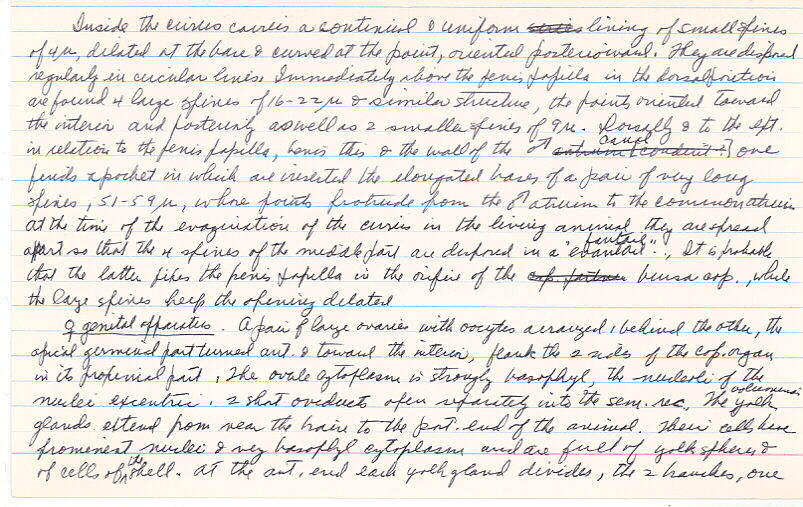 Inside the cirrus courses a continual & uniform lining of small spines
of 4μ, dilated at the base & curved at the point, oriented posteriorward. They are disposed
regularly in circular lines. Immediately above the penis papilla in the dorsal portion
are found 4 large spines of 16-22μ & similar structure, the points oriented toward
the interior and posteriorly as well as 2 smaller spines of 9μ. Dorsally & to the left
in relation to the penis papilla, between this & the wall of the ♂ canal one
finds a pocket in which are inserted the elongated bases of a pair of very long
spines, 51-59μ, whose points protrude from the ♂ atrium to the common atrium
at the time of the evagination of the cirrus in the living animal they are spread
apart so that the 4 spines of the middle part are disposed in a "evantail" "fantail". It is probable
that the latter fixes the penis papilla in the orifice of the bursa cop., while
the large spines keep the opening dilated
♀ genital apparatus. A pair of large ovaries with oocytes arranged 1 behind the other, the
apical germinal part turned ant. & toward the interior, flank the 2 sides of the cop. organ
in its proximal part. The ovule cytoplasm is strongly basophyl, the nucleoli of the voluminous
nuclei excentric. 2 short oviducts open separately into the sem. rec. The yolk
glands extend from near the brain to the post. end of the animal. Their cells have
prominent nuclei & very basophyl cytoplasm and are full of yolk spheres &
of cells of the shell. At the ant. end each yolk gland divides, the 2 branches, one